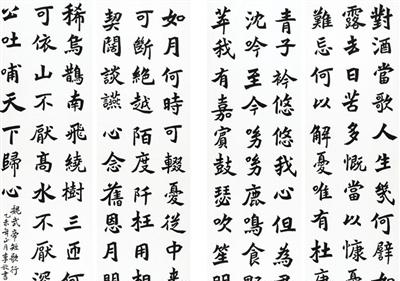 對酒當歌人生幾何譬如
露去日苦多慨當以慷憂
難忘何以解憂唯有杜康
青子衿悠悠我心但為君
沈吟至今呦呦鹿鳴食野
苹我有嘉賓鼓瑟吹笙明
如月何時可輟憂從中來
可斷絕越陌度阡枉用相
契闊談讌心念舊恩月明
稀烏鵲南飛繞樹三匝何
可依山不厭高水不厭深
公吐哺天下歸心
魏武帝短歌行
乙未年正月李書